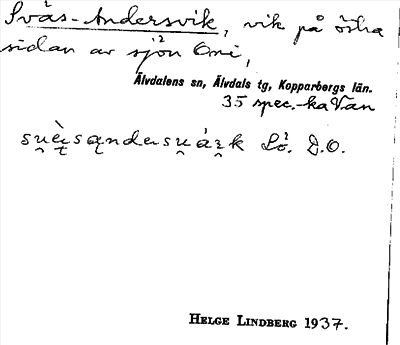 Svås-Andersvik, vik på östra
sidan av sjön Omi,
Älvdalens sn, Älvdals tg, Kopparbergs län.
35 spec.-ka Van
Lö. D.O.
HELGE LINDBERG 1937.